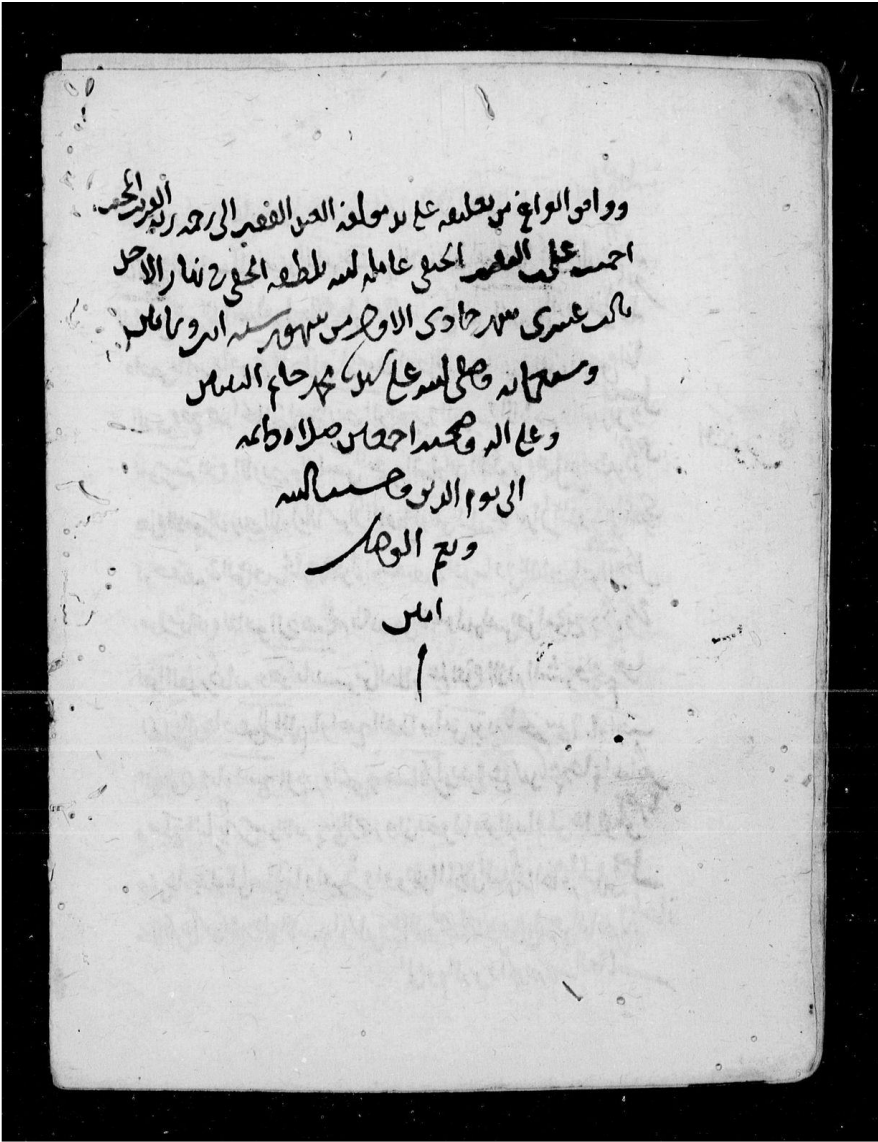 ووافق الفراغ من تعليقه على يد مولفه العبد الفقير الى رحمة ربه القريب المجيب
احمد على الحنفى عامله الله بلطفه الخفى فى نهار الاحد
ثالث عشرى شهر جمادى الاول من شهور سنة اثنين وثمانين
وسبعمائة وصلى الله على سيدنا محمد خاتم النبيين
وعلى اله وصحبه اجمعين صلاة دائمة
الى يوم الدين وحسبنا الله
ونعم الوكيل
امين